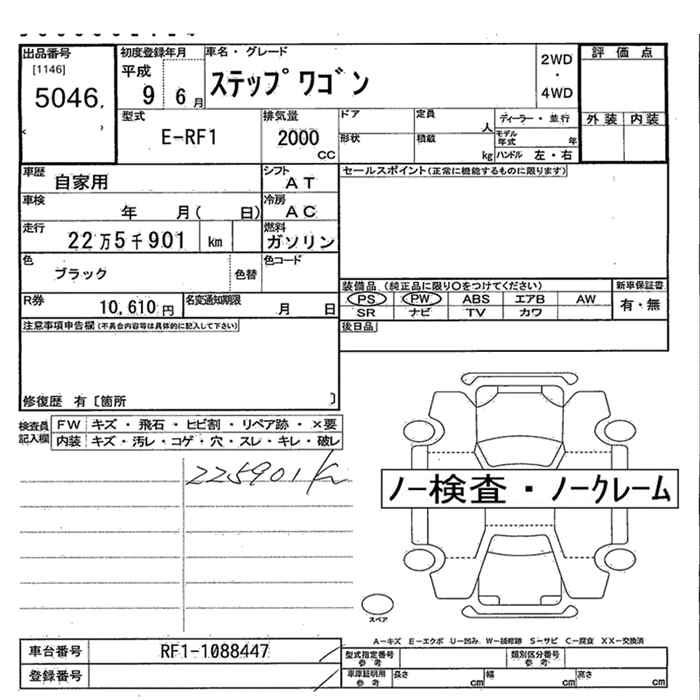 出品番号 初度登録年月 車名・グレード 評価点
[1146] 平成 2WD
5046. 9 6月 ステップワゴン ・
4WD
型式 排気量 ドア 定員 ディーラー・並行 外装 内装
E-RF1 2000 人 モデル年式 年
CC 形状 積載 kg ハンドル 左・右
車歴 自家用 シフト AT セールスポイント(正常に機能するものに限ります)
車検 年 月( 日) 冷房 AC
走行 22万5千901 km 燃料 ガソリン
色 ブラック 色替 色コード
装備品 (純正品に限り○をつけてください) 新車保証書
R券 10,610円 名変通知期限 月 日 PS PW ABS エアB AW 有・無
SR ナビ TV カワ
注意事項申告欄(不具合内容等は具体的に記入して下さい) 後日品
修復歴 有〔箇所 〕
検査員記入欄 FW キズ・飛石・ヒビ割・リペア跡・×要
内装 キズ・汚レ・コゲ・穴・スレ・キレ・破レ
225901km
ノー検査・ノークレーム
スペア
A-キズ E-エクボ U-凹み W-補修跡 S-サビ C-腐食 XX-交換済
車台番号 RF1-1088447 型式指定番号 参考 類別区分番号 参考
登録番号 車庫証明用 参考 長さ cm 幅 cm 高さ cm